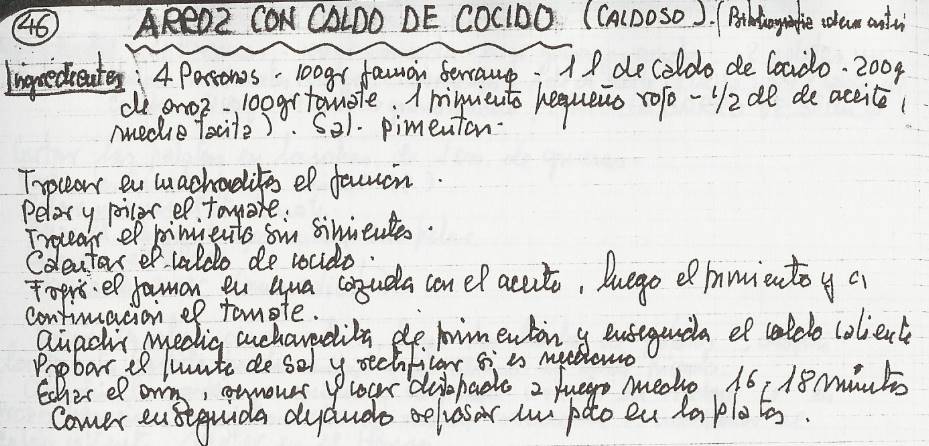 46 ARROZ CON CALDO DE COCIDO (CALDOSO).
Ingredientes: 4 Personas - 100gr jamón serrano - 1 l de caldo de cocido - 200g
de arroz - 100gr tomate. 1 pimiento pequeño rojo - 1/2 dl de aceite,
media tacita). Sal. pimentón.
Trocear en cuadraditos el jamón.
Pelar y picar el tomate.
Trocear el pimiento sin simientes.
Calentar el caldo de cocido.
Freír el jamon en una cazuela con el aceite, luego el pimiento y a
continuación el tomate.
Añadir media cucharadita de pimentón y enseguida el caldo caliente
Probar el punto de sal y rectificar si es necesario
Echar el arroz, remover y cocer destapado a fuego medio 16, 18 minutos
Comer enseguida dejando reposar un poco en los platos.